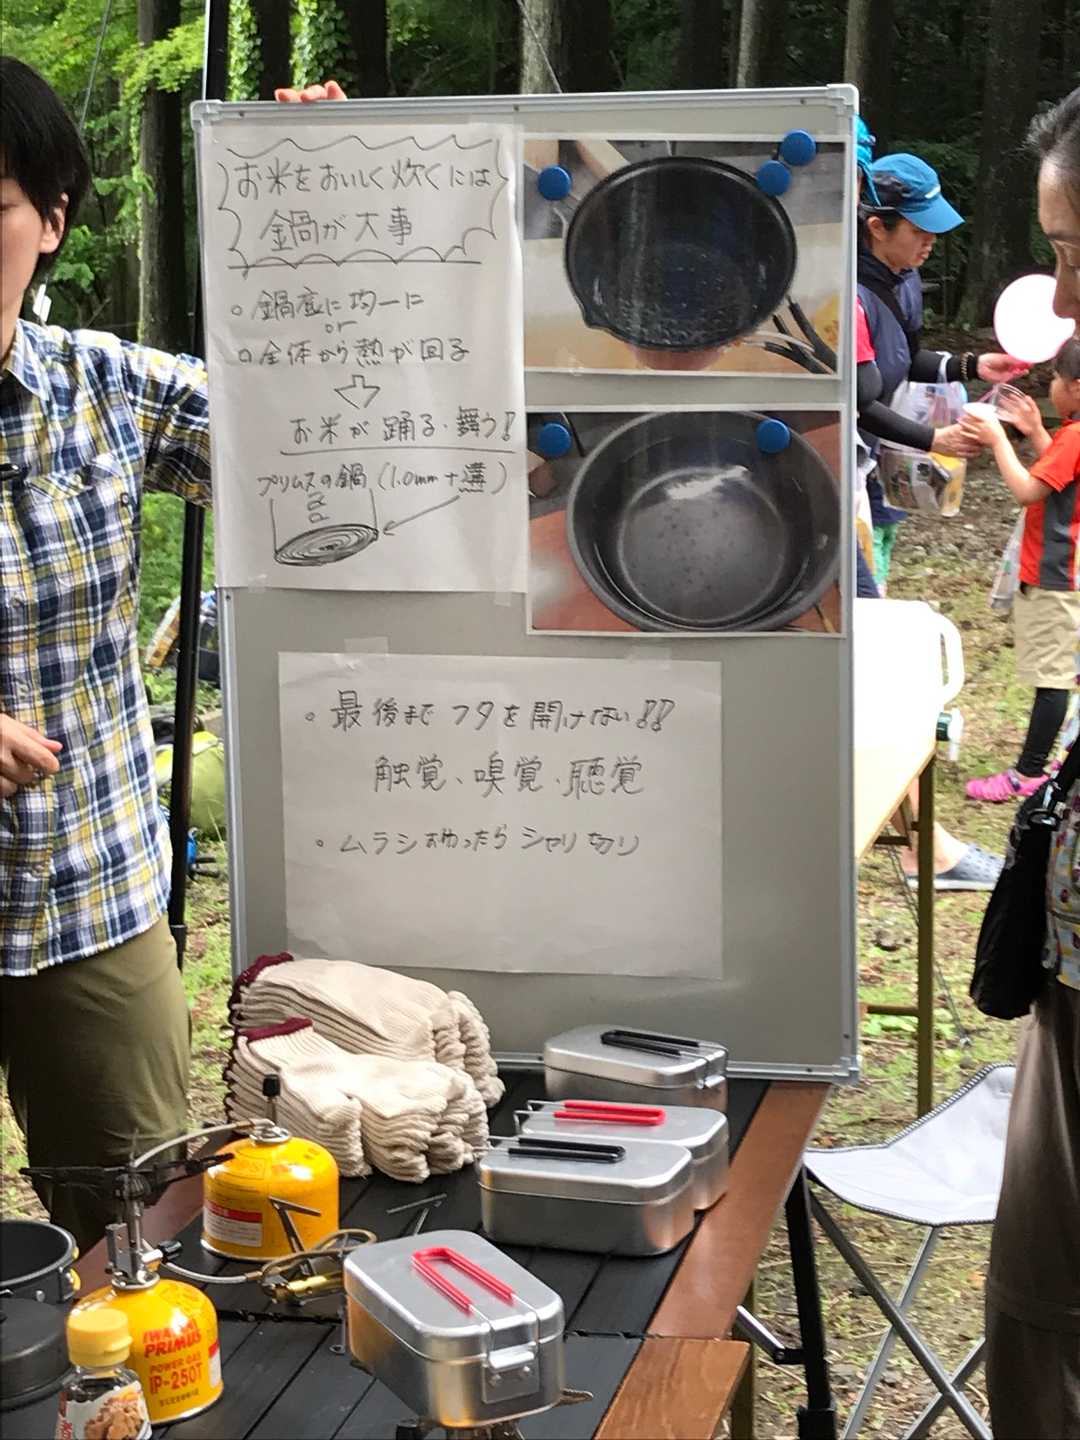 お米をおいしく炊くには
鍋が大事
○鍋底に均一に
or
○全体から熱が回る
お米が踊る・舞う!
プリムスの鍋 (1.0mm+溝)
○最後までフタを開けない!!
触覚、嗅覚、聴覚
○ムラシ終わったらシャリ切り
IWATANI
PRIMUS
POWER GAS
IP-250T